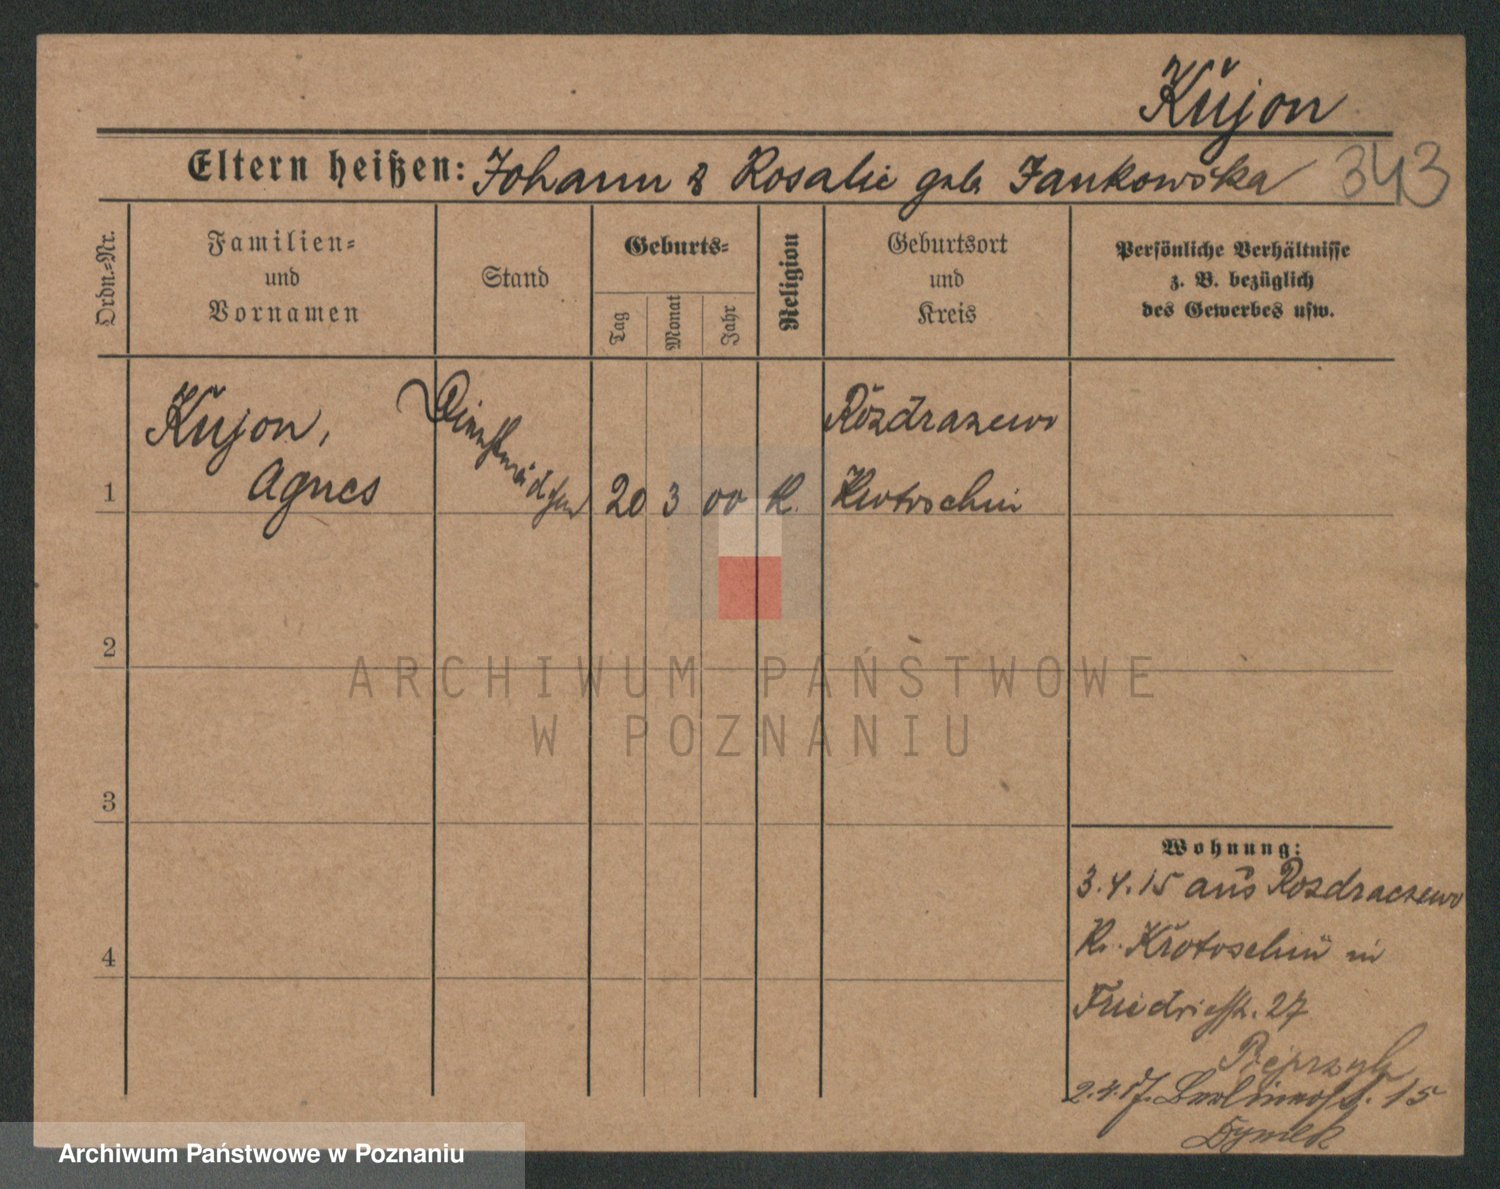 Kujon
Eltern heißen: Johann & Rosalie geb. Jankowska
343
Ordn.=Nr.
Familien=
und
Vornamen
Stand
Geburts=
Tag
Monat
Jahr
Religion
Geburtsort
und
Kreis
Persönliche Verhältnisse
z. B. bezüglich
des Gewerbes usw.
1
Kujon,
Agnes
Dienstmädchen
20
3
00
K.
Rozdrazewo
Krotoschin
2
ARCHIWUM PAŃSTWOWE
W POZNANIU
3
4
Wohnung:
3.4.15 aus Rozdraczewo
Kr. Krotoschin in
Friedrichstr. 27
2.4.17. Berlinerstr. 15
Dymek
Archiwum Państwowe w Poznaniu